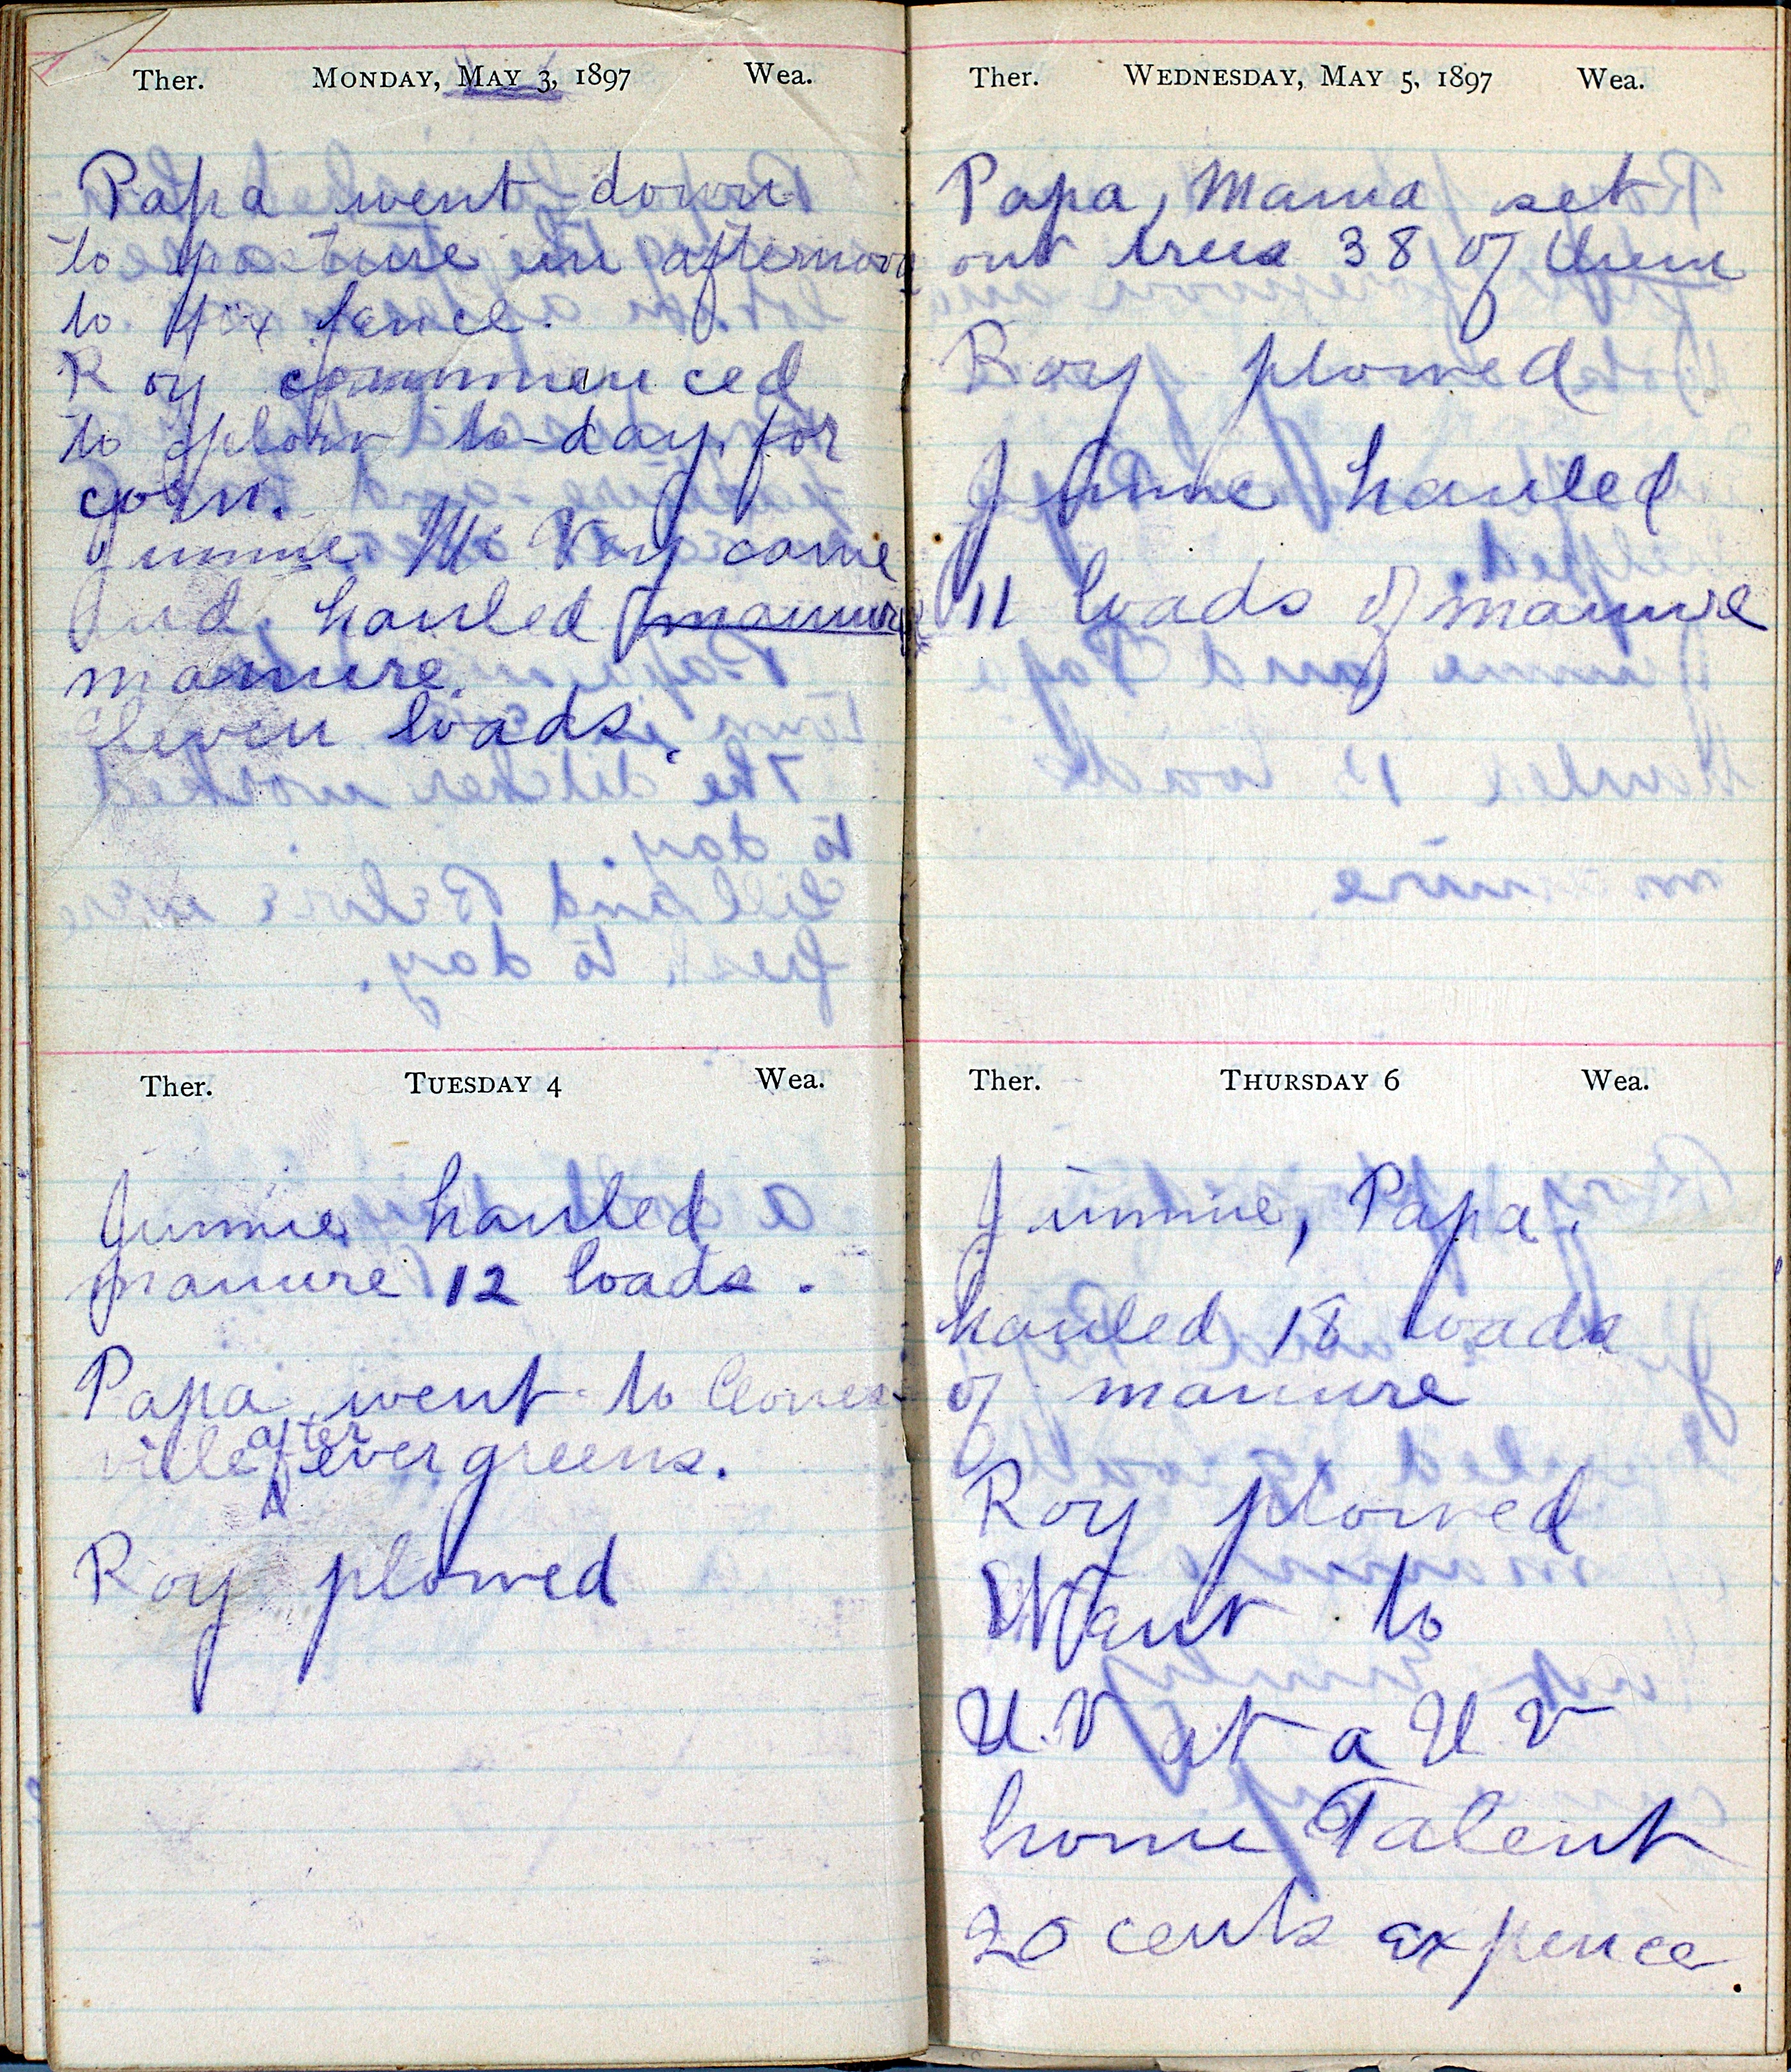 Ther. MONDAY, MAY 3, 1897 Wea.
Papa went down
to pasture in afternoon
to fix fence.
Roy commenced
to plow to-day for
corn.
Jimmie Mc Vey came
and hauled manure
manure.
Eleven loads.
Ther. TUESDAY 4 Wea.
Jimmie hauled
manure 12 loads.
Papa went to
ville after evergreens.
Roy plowed
Ther. WEDNESDAY, MAY 5, 1897 Wea.
Papa, Mama set
out trees 38 of them
Roy plowed
Jimmie hauled
11 loads of manure
Ther. THURSDAY 6 Wea.
Jimmie, Papa.
hauled 18 loads
of manure
Roy plowed
Went to
U.V at a U.V
home Talent
20 cents expence